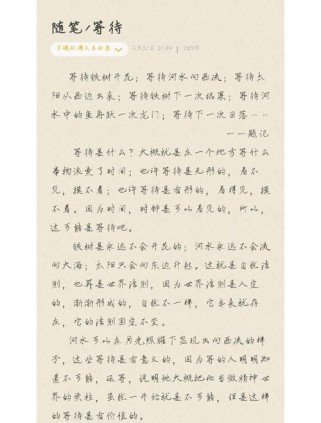 随笔/等待
等待铁树开花；等待河水向西流；等待太
阳从西边出来；等待铁树下一次结果；等待河
水中的鱼再跃一次龙门；等待下一次日落……
——题记
等待是什么？大概就是在一个地方等什么
事物浪费了时间；也许等待是无形的，看不
见，摸不着；也许等待是有形的，看得见，摸
不着。因为时间，时钟是可以看见的，所以，
这可能是等待吧。
铁树是永远不会开花的；河水永远不会流
向大海；太阳只会向东边升起。这就是自然法
则，也算是世界法则，因为世界法则是人定
的，渐渐形成的，自然不一样，它本来就存
在，它的法则固定不变。
河水可以在月光照耀下显现出向西流的样
子，这些等待是有意义的，因为等的人明明知
道不可能，还等，说明他大概把此当做精神世
界的荣柱，虽然一开始就是不可能，但是这样
的等待是有价值的。